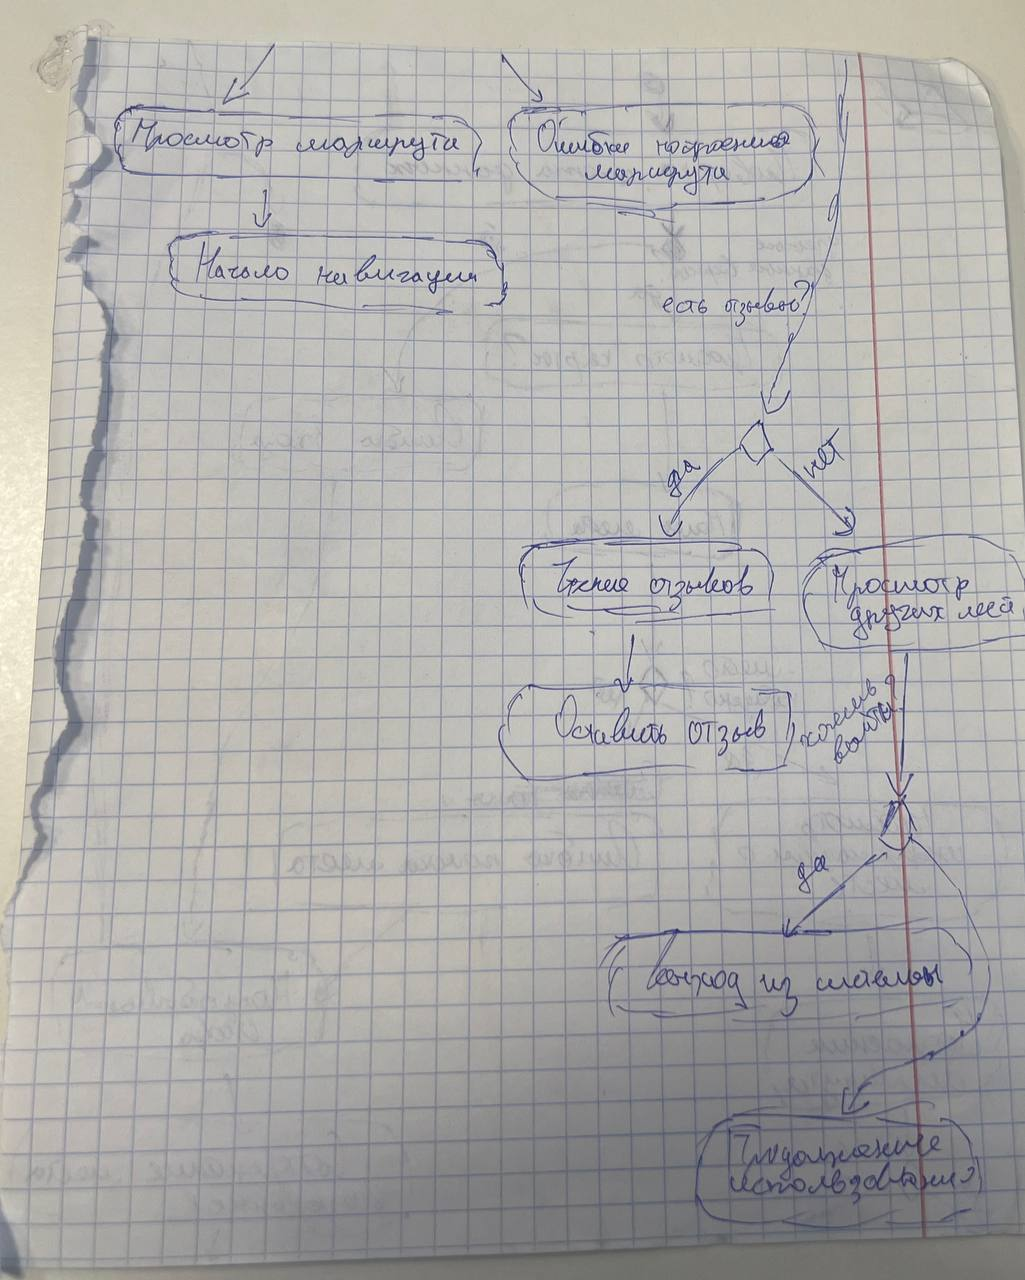 Просмотр маршрута
Ошибка построения
маршрута
Начало навигации
есть отзывы?
да
нет
Чтение отзывов
Просмотр
других мест
Оставить отзыв
хочешь
выйти?
да
Выход из системы
Продолжение
использования